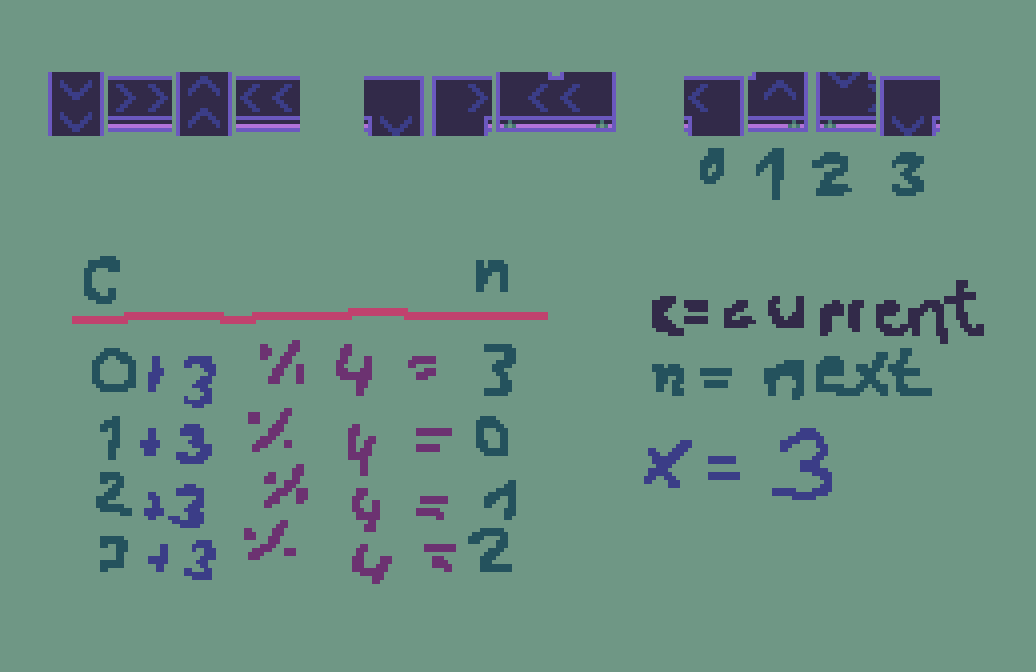 0 1 2 3
C n
0 + 3 % 4 = 3
1 + 3 % 4 = 0
2 + 3 % 4 = 1
3 + 3 % 4 = 2
c = current
n = next
x = 3